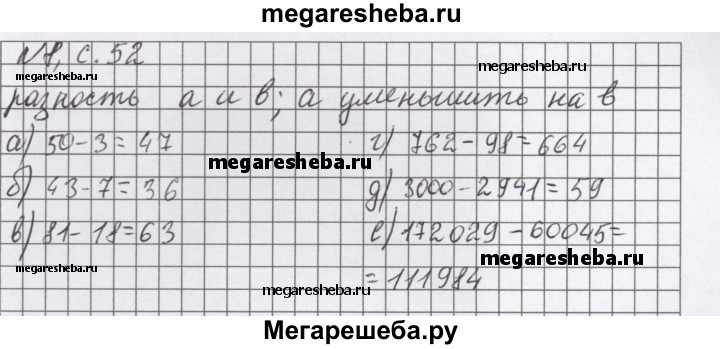 megaresheba.ru
№1, с. 52
megaresheba.ru
megaresheba.ru
разность a и b; a уменьшить на b
а) 50-3=47
г) 762-98=664
megaresheba.ru
б) 43-7=36
д) 3000-2941=59
в) 81-18=63
е) 172029-60045=
megaresheba.ru
megaresheba.ru
=111984
megaresheba.ru
Мегарешеба.ру